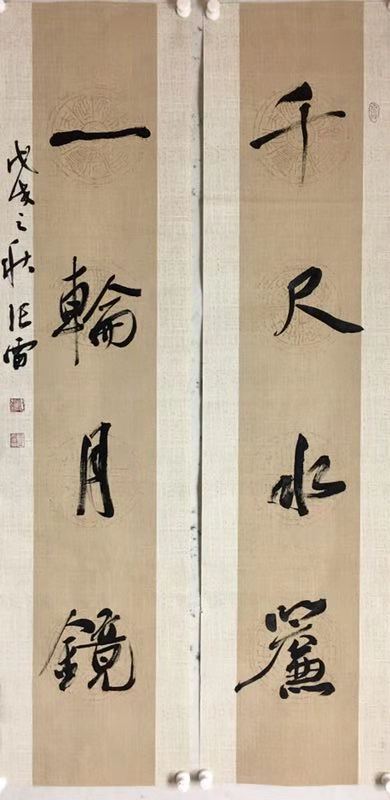 千尺水簾
一輪月鏡
戊戌之秋